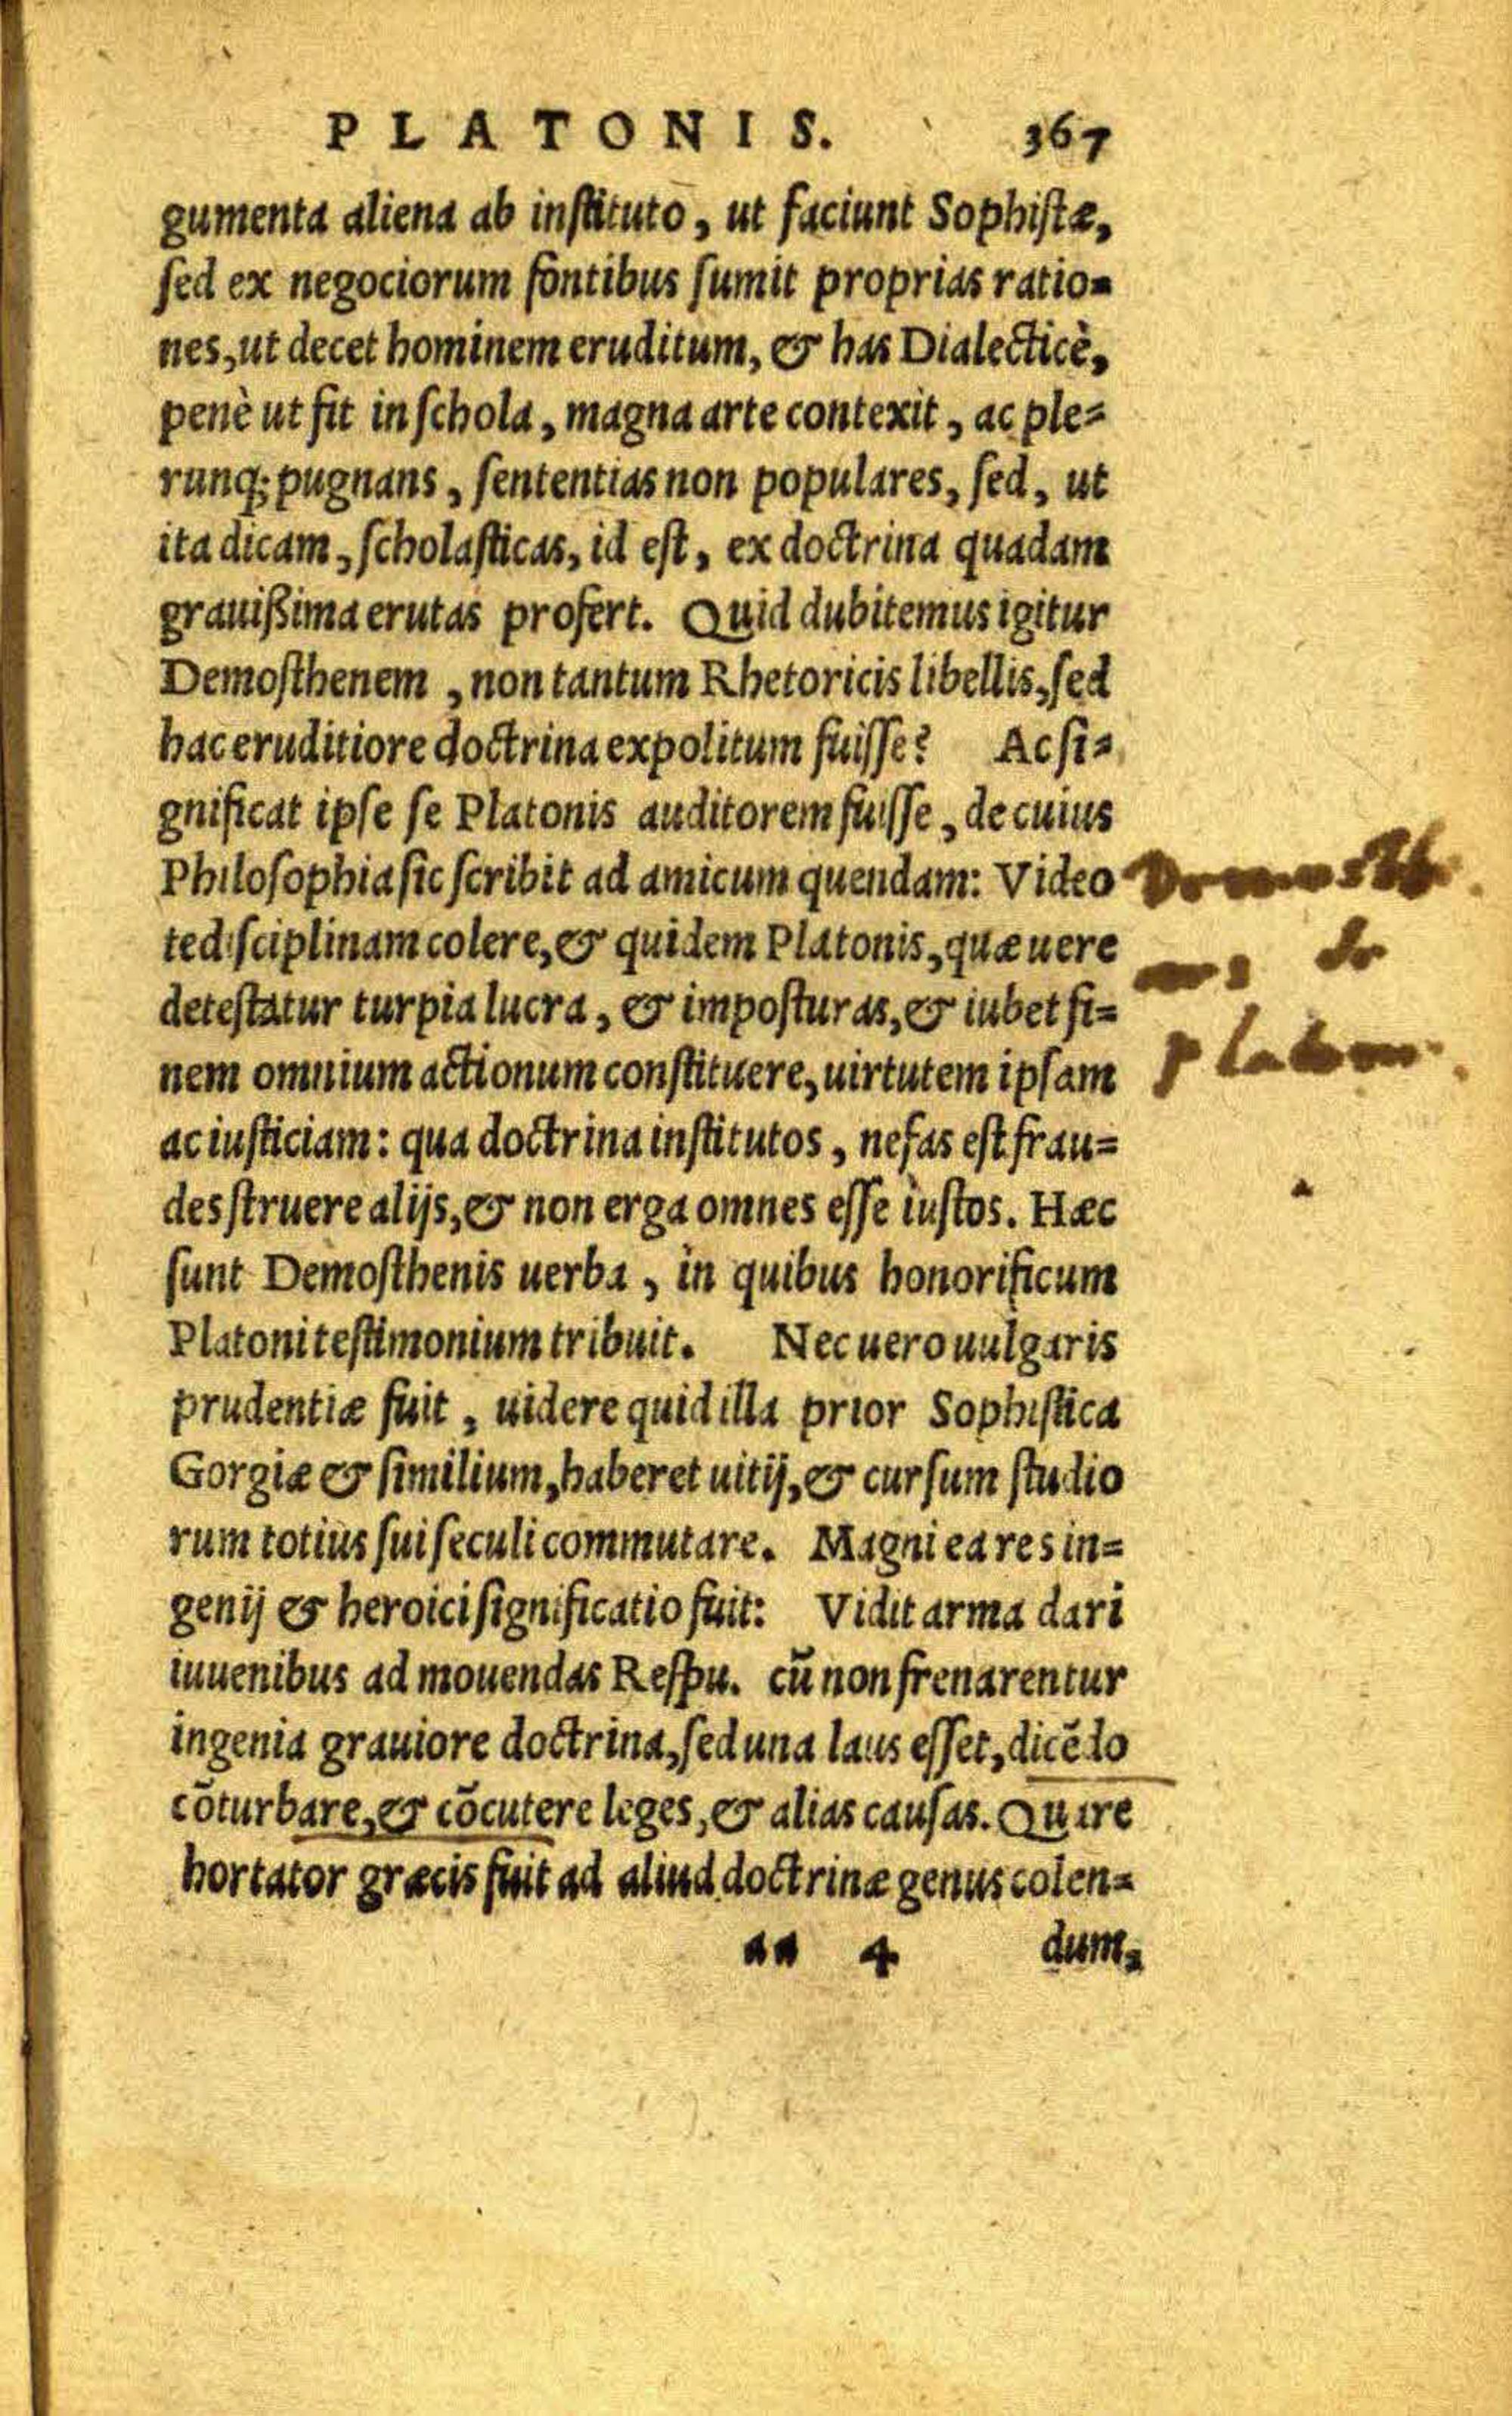 PLATONIS. 367
gumenta aliena ab instituto, ut faciunt Sophistæ,
sed ex negociorum fontibus sumit proprias ratio=
nes, ut decet hominem eruditum, & has Dialecticè,
penè ut fit in schola, magna arte contexit, ac ple=
runq; pugnans, sententias non populares, sed, ut
ita dicam, scholasticas, id est, ex doctrina quadam
grauißima erutas profert. Quid dubitemus igitur
Demosthenem, non tantum Rhetoricis libellis, sed
hac eruditiore doctrina expolitum fuisse? Ac si=
gnificat ipse se Platonis auditorem fuisse, de cuius
Philosophia sic scribit ad amicum quendam: Video
te disciplinam colere, & quidem Platonis, quæ uere
detestatur turpia lucra, & imposturas, & iubet fi=
nem omnium actionum constituere, uirtutem ipsam
ac iusticiam: qua doctrina institutos, nefas est frau=
des struere alijs, & non erga omnes esse iustos. Hæc
sunt Demosthenis uerba, in quibus honorificum
Platoni testimonium tribuit. Nec uero uulgaris
prudentiæ fuit, uidere quid illa prior Sophistica
Gorgiæ & similium, haberet uitij, & cursum studio
rum totius sui seculi commutare. Magni ea res in=
genij & heroici significatio fuit: Vidit arma dari
iuuenibus ad mouendas Respu. cū non frenarentur
ingenia grauiore doctrina, sed una laus esset, dicēdo
cōturbare, & cōcutere leges, & alias causas. Quare
hortator græcis fuit ad aliud doctrinæ genus colen=
aa 4 dum,
de
platon